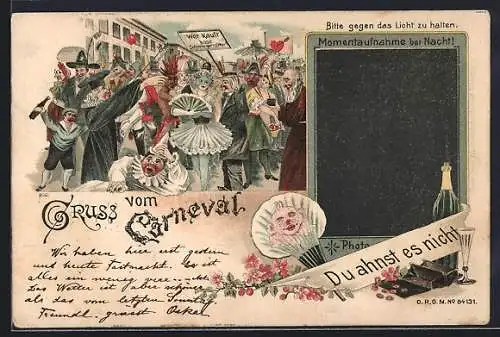 Bitte gegen das Licht zu halten.
Momentaufnahme bei Nacht!
Wer kauft
Gruss vom
Carneval
Photo
Du ahnst es nicht
Wir haben hier erst gestern
und heute Fastnacht. Es ist
alles ein
Das Wetter ist aber schöner
als das vom letzten Sonntag
Freundl. grüsst Oskar
D.R.G.M. No 84131.